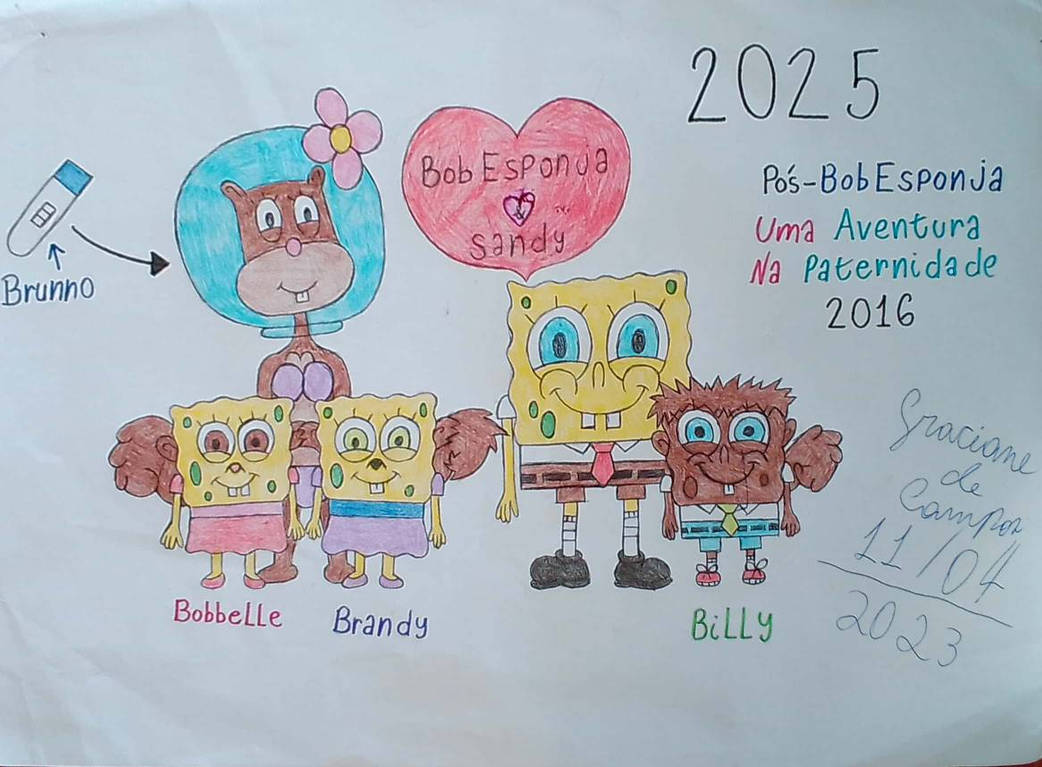 2025
Pós-Bob Esponja
Uma Aventura
Na Paternidade
2016
Bob Esponja
&
Sandy
Brunno
Bobbelle
Brandy
Billy
Graciane
de
Campos
11/04
2023